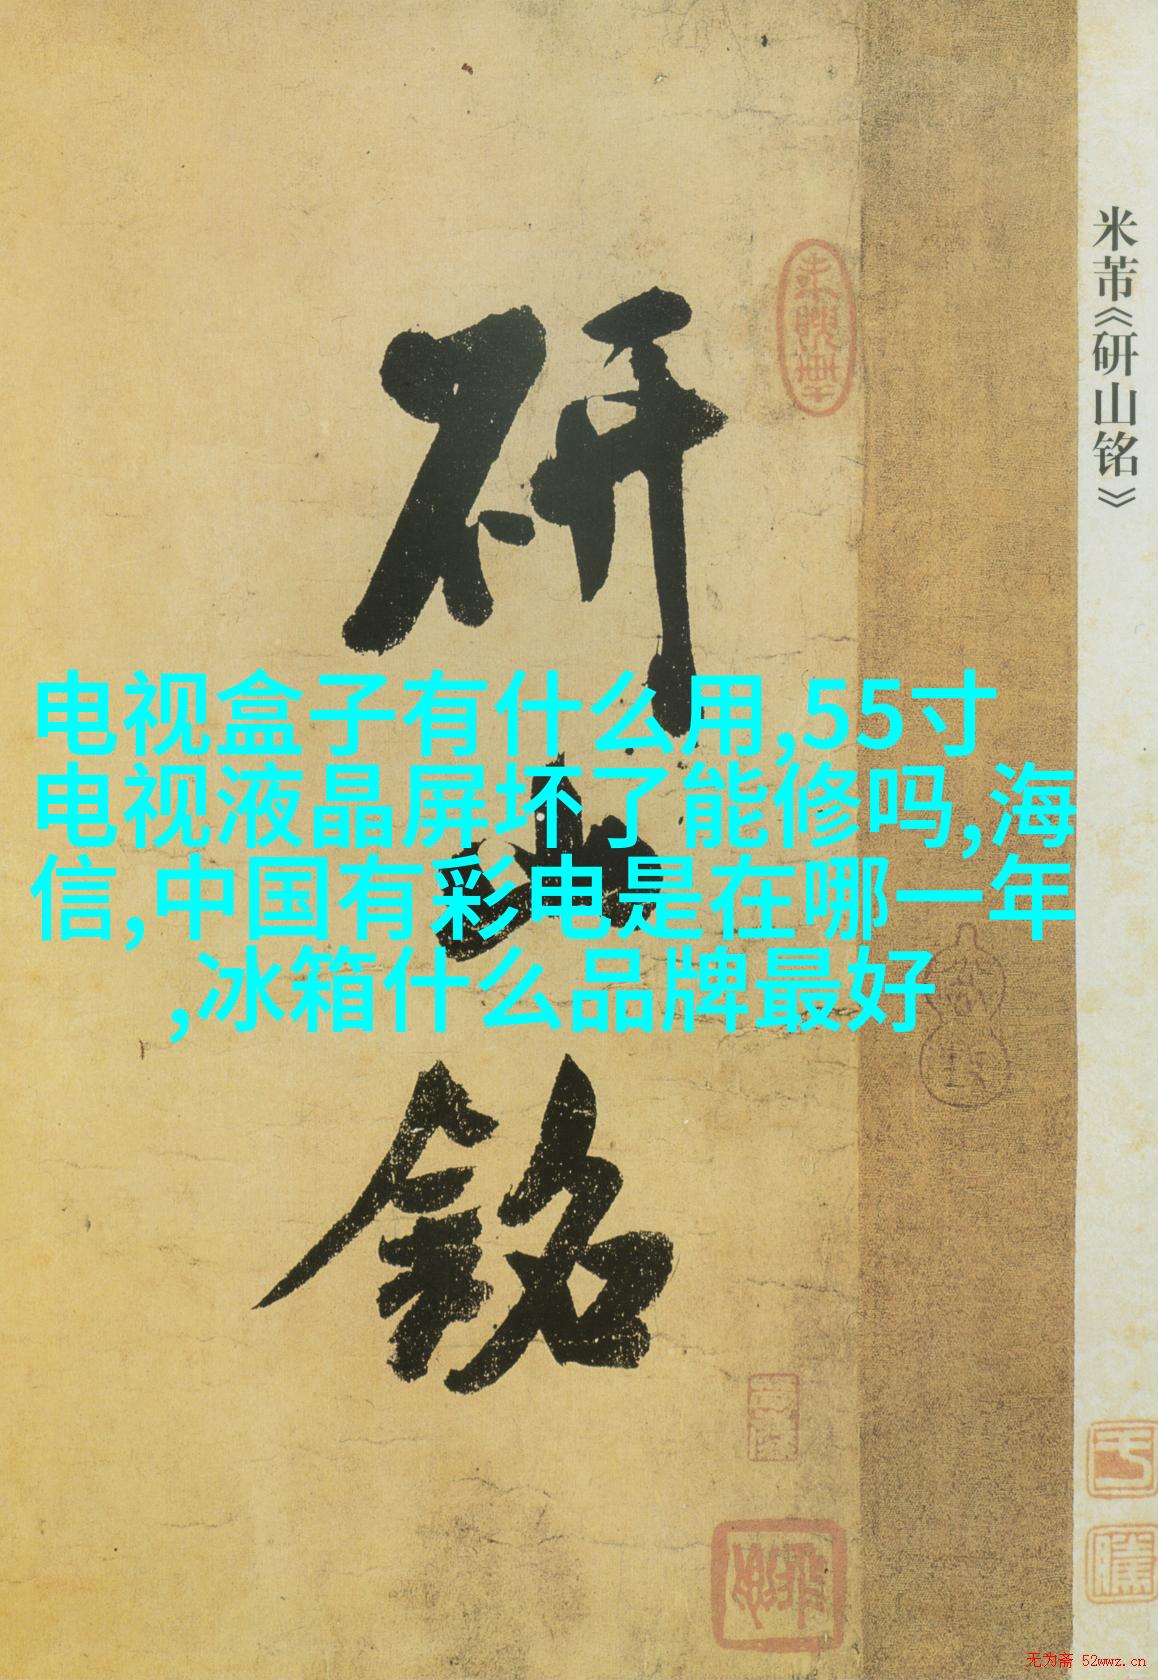 米芾《研山铭》
研山铭
电视盒子有什么用,55寸
电视液晶屏坏了能修吗,海
信,中国有彩电是在哪一年
,冰箱什么品牌最好
无为斋 52wwz.cn